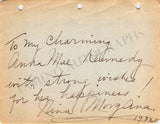 To my charming
Anna Mae Kennedy
with strong wishes
for her happiness
Nina Morgana
1932